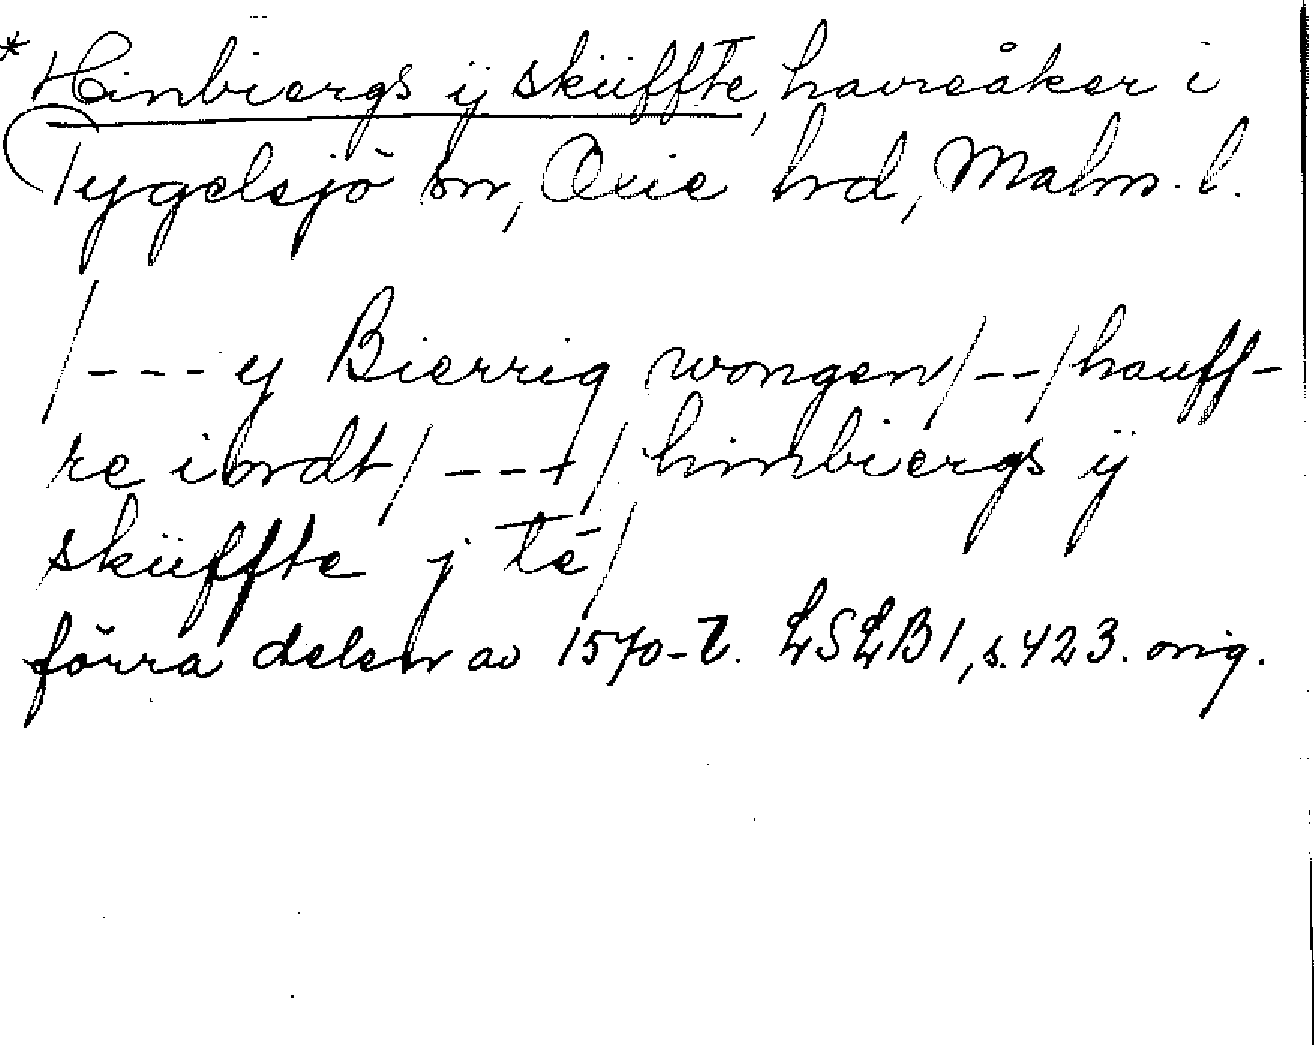 * Hinbiergs ÿ sküffte, havreåker i
Tygelsjö sn, Oxie hrd, Malm. l.
/--- y Bierrig wongen/--/hauff-
re iordt/---/hinbiergs ÿ
sküffte j té/
förra delen av 1570-t. LSLB1, s. 423. orig.